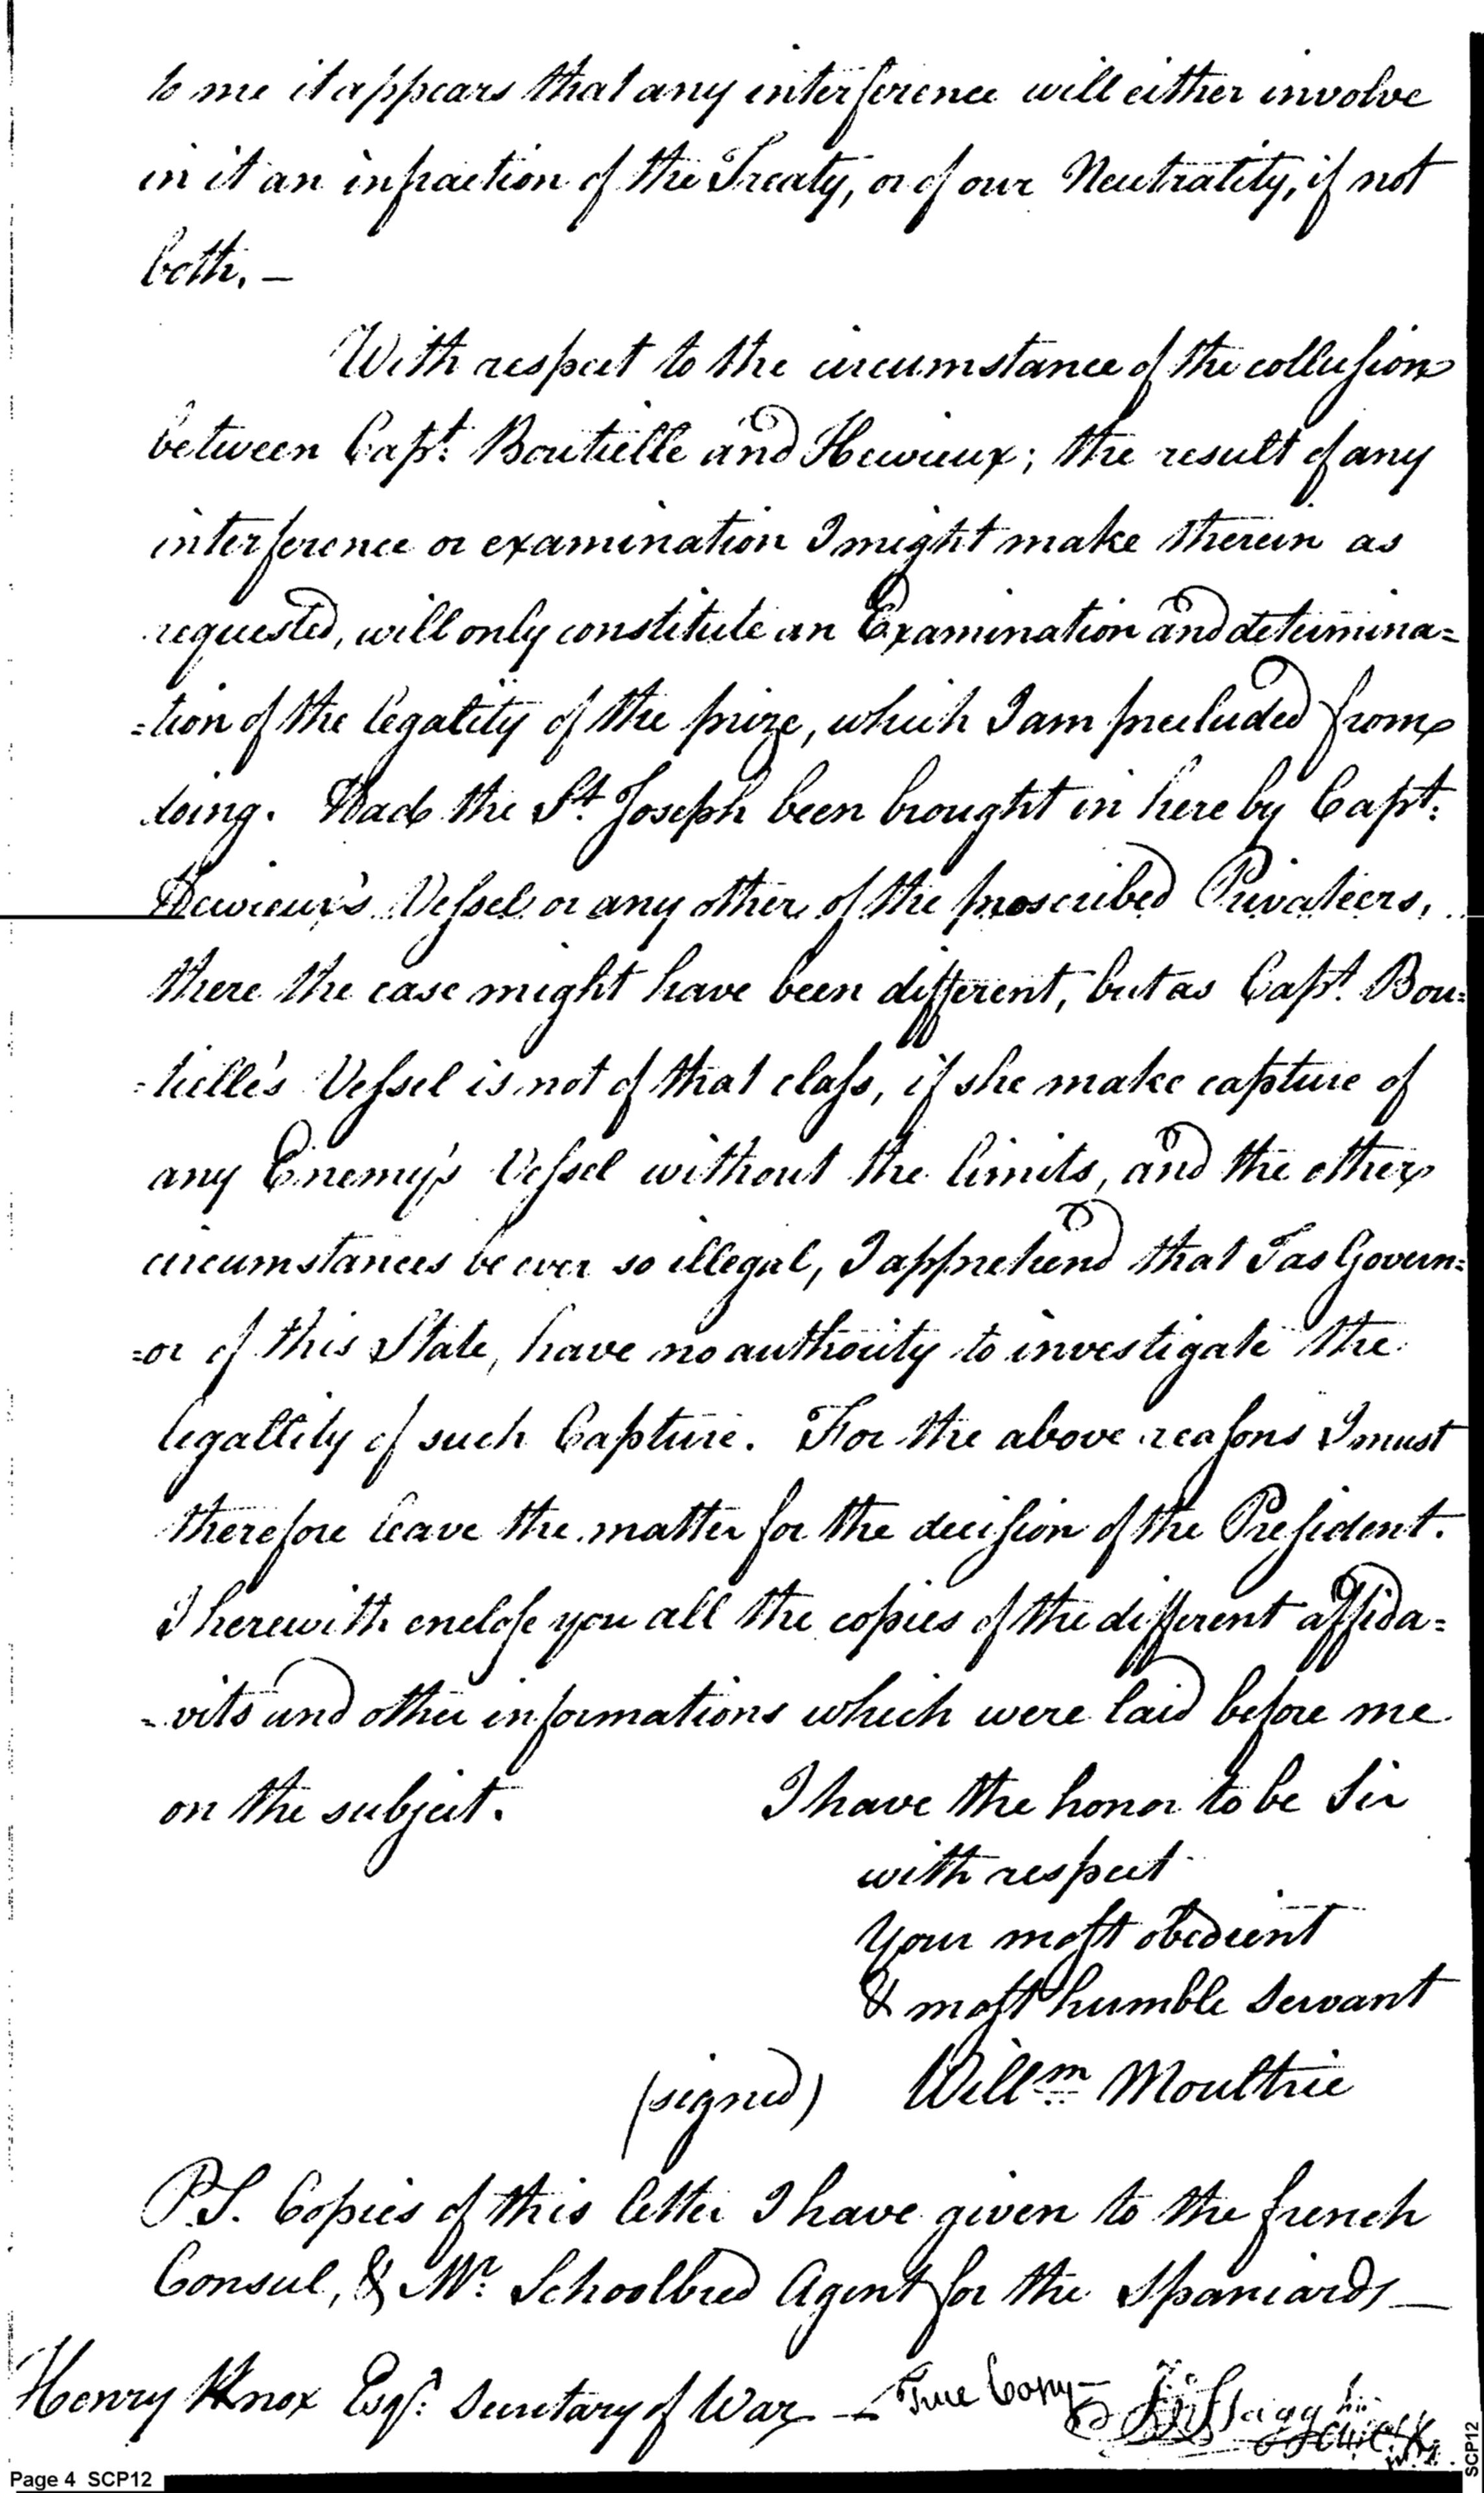 to me it appears that any interference will either involve
in it an infraction of the Treaty, or of our Neutrality, if not
both. —
With respect to the circumstance of the collusion
between Capt. Boutielle and Hervieux; the result of any
interference or examination I might make therein as
requested, will only constitute an Examination and determina=
=tion of the legality of the prize, which I am precluded from
doing. Had the St. Joseph been brought in here by Capt:
Hervieux's Vessel or any other of the proscribed Privateers,
there the case might have been different, but as Capt. Bou=
=tielle's Vessel is not of that class, if she make capture of
any Enemy's Vessel without the limits, and the other
circumstances be ever so illegal, I apprehend that I as Govern=
=or of this State, have no authority to investigate the
legallity of such Capture. For the above reasons I must
therefore leave the matter for the decision of the President.
I herewith enclose you all the copies of the different affida=
=vits and other informations which were laid before me
on the subject. I have the honor to be Sir
with respect
Your most obedient
& most humble Servant
(signed) Willm Moultrie
P.S. Copies of this letter I have given to the french
Consul, & Mr. Schoolbred Agent for the Spaniards —
Henry Knox Esqr. Secretary of War — True Copy —
Jn Stagg Jr
Page 4 SCP12
SCP12